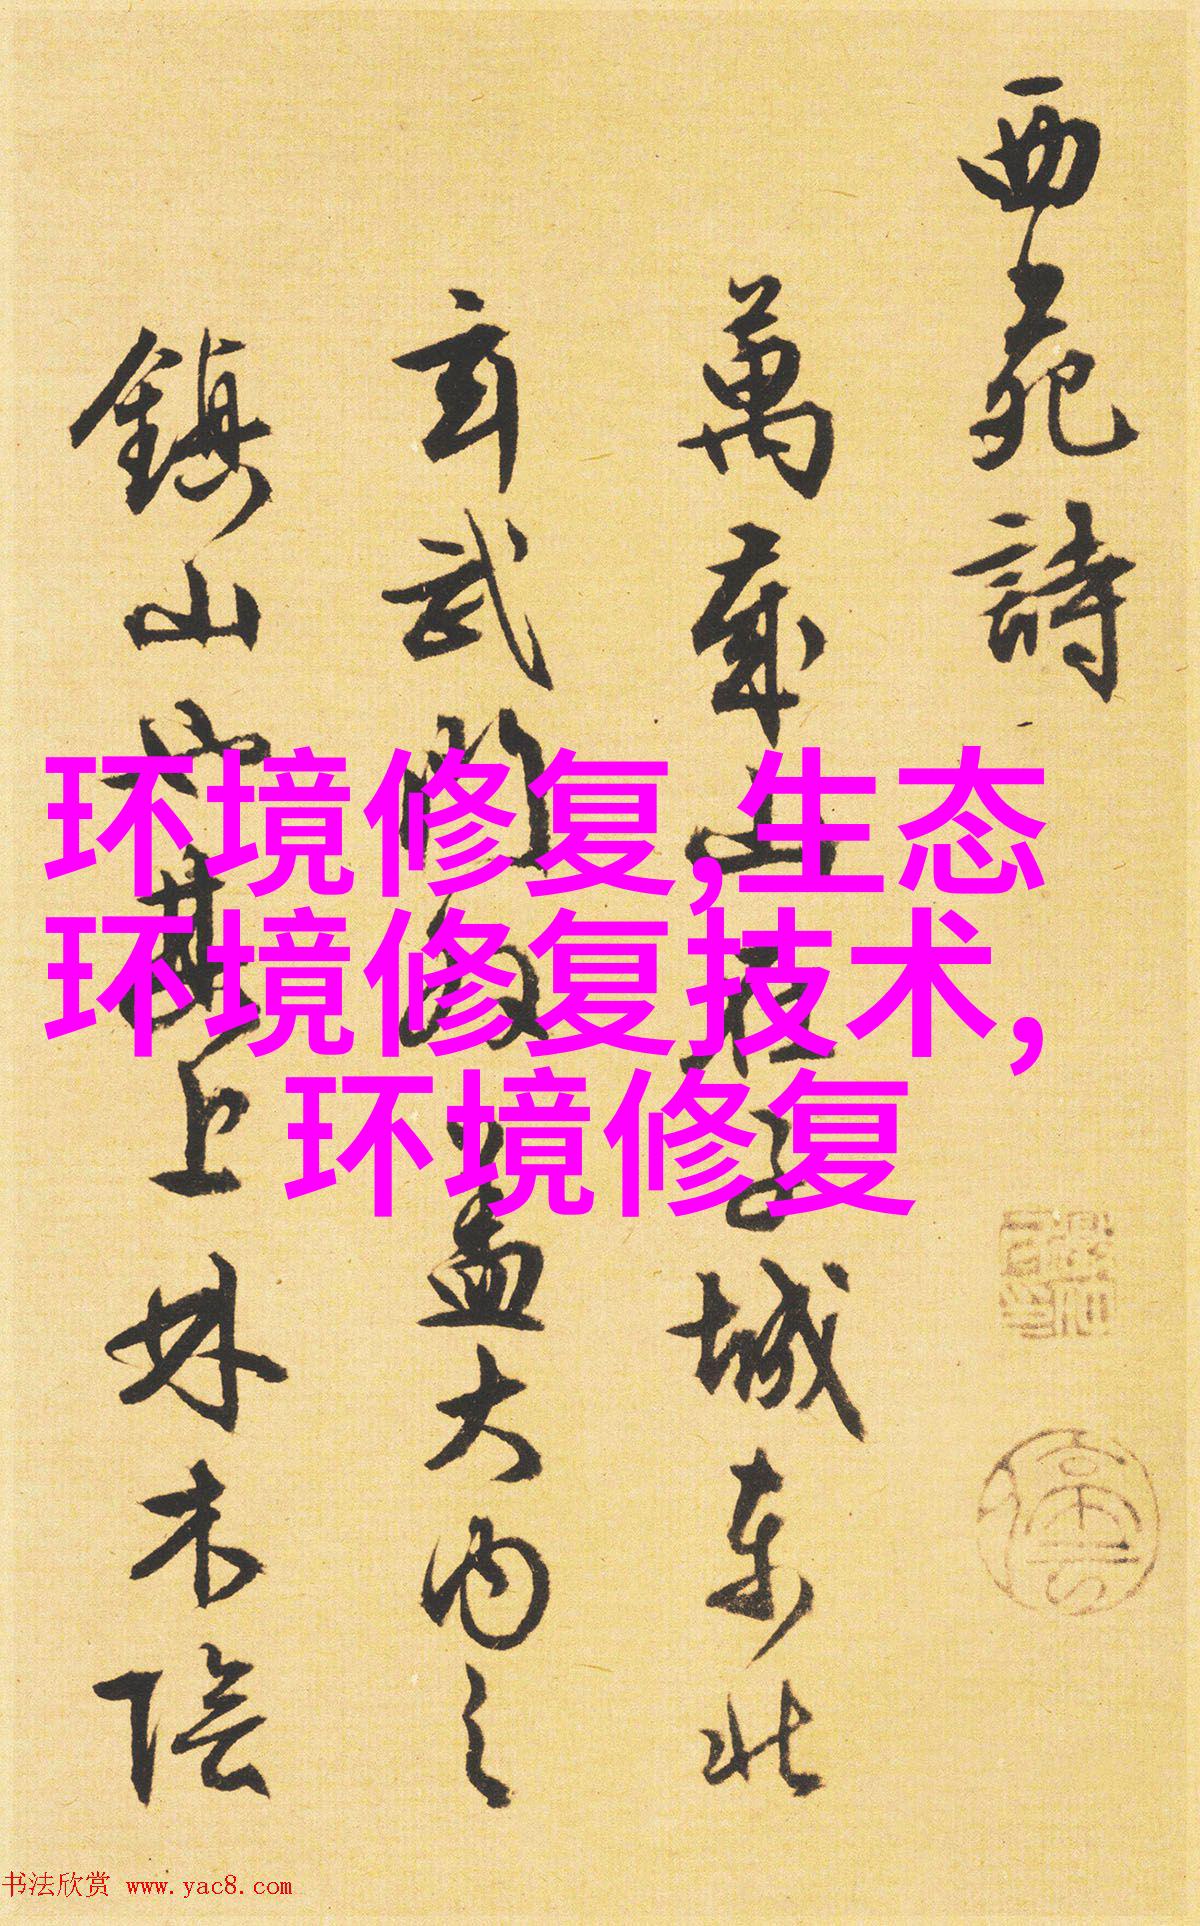 西苑詩
萬歲山在子城東北
玄武門盖大內之
鎮山也其上林木陰
环境修复,生态
环境修复技术,
环境修复
书法欣赏 www.yac8.com